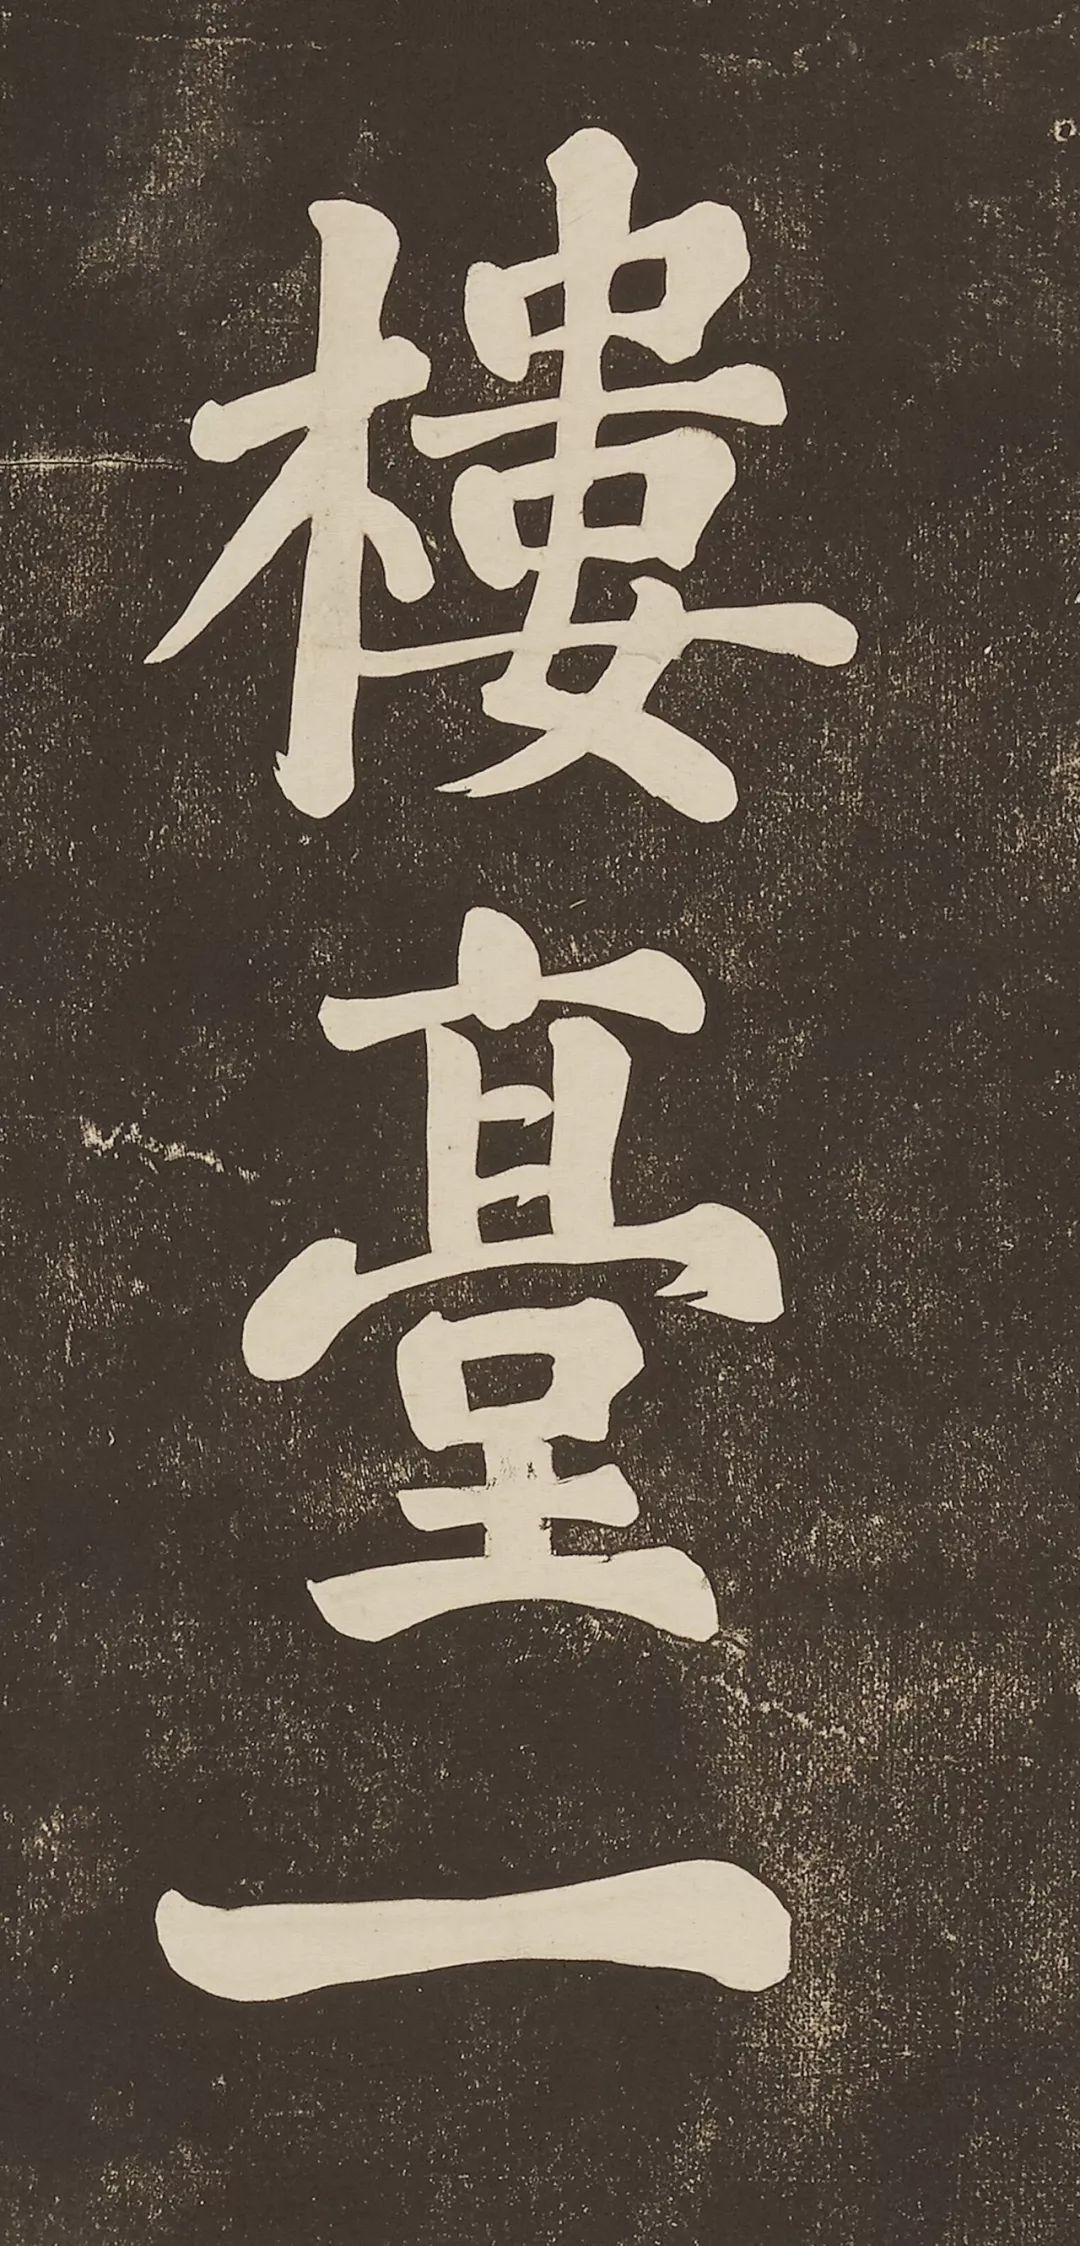 樓臺一